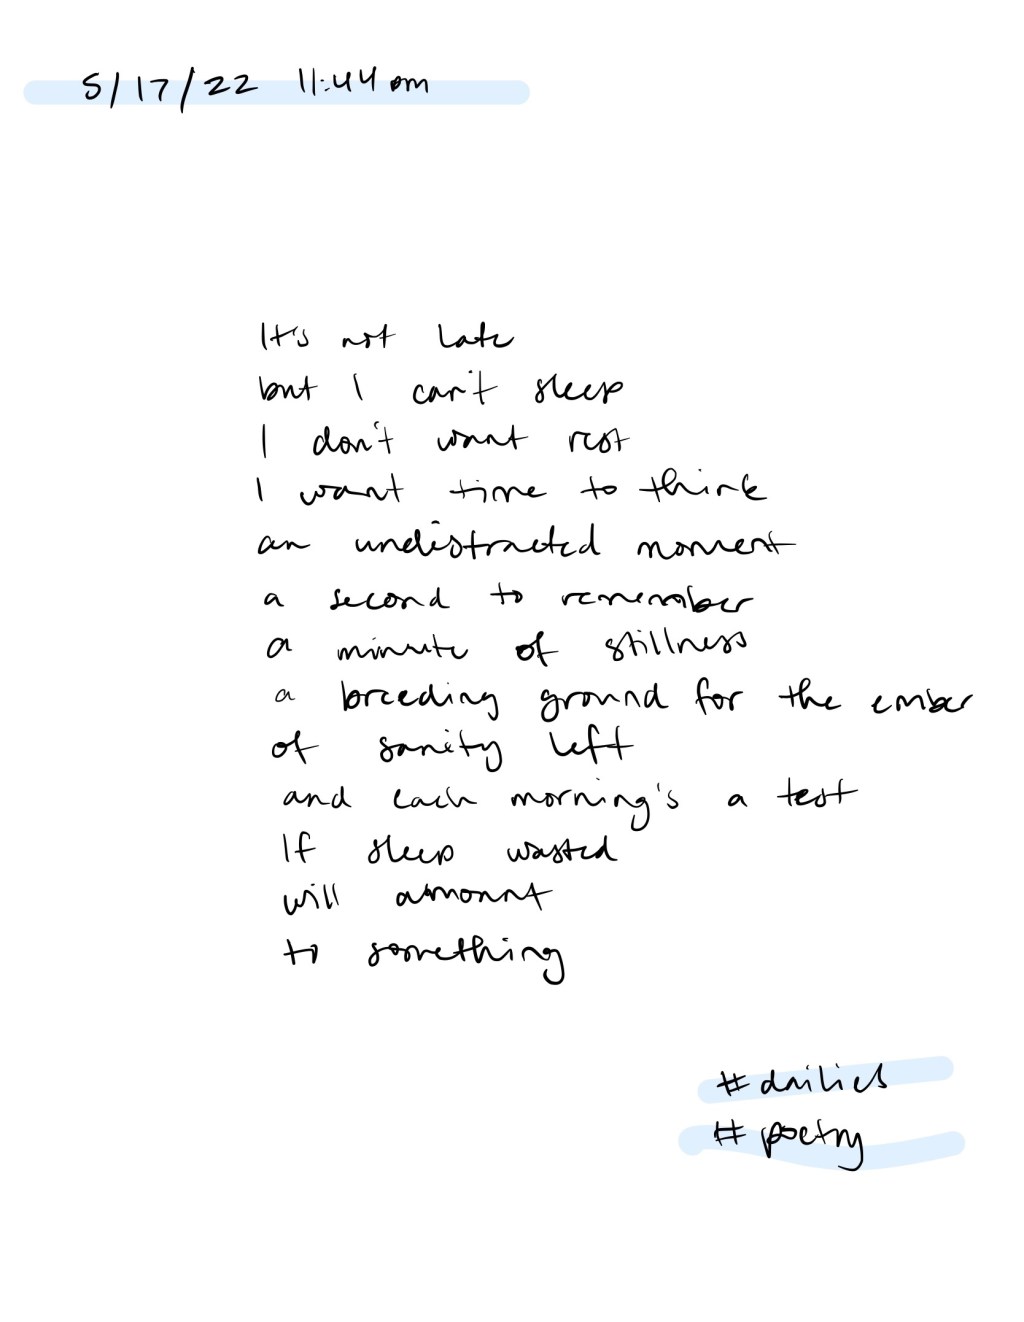 5/17/22 11:44 pm
It's not late
but I can't sleep
I don't want rest
I want time to think
an undistracted moment
a second to remember
a minute of stillness
a breeding ground for the ember
of sanity left
and each morning's a test
If sleep wasted
will amount
to something
#dailies
#poetry